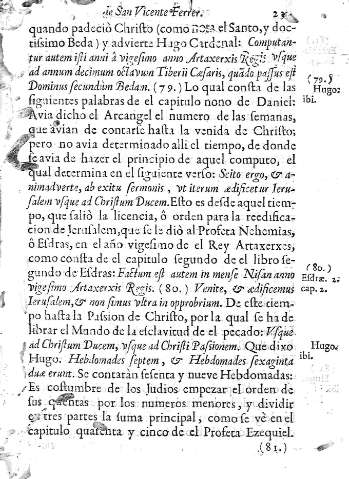 de San Vicente Ferrer. 23
quando padeciò Christo (como nota el Santo, y doc-
tissimo Beda) y advierte Hugo Cardenal: Computan-
tur autem isti anni à vigesimo anno Artaxerxis Regis vsque
ad annum decimum octavum Tiberii Cæsaris, quãdo passus est
Dominus secundùm Bedan. (79.) Lo qual consta de las
(79.)
Hugo:
ibi.
siguientes palabras de el capitulo nono de Daniel:
Avia dicho el Arcangel el numero de las semanas,
que avian de contarse hasta la venida de Christo;
pero no avia determinado alli el tiempo, de donde
se avia de hazer el principio de aquel computo, el
qual determina en el siguiente verso: Scito ergo, & a-
nimadverte, ab exitu sermonis, vt iterum ædificetur Ieru-
salem vsque ad Christum Ducem. Esto es desde aquel tiem-
po, que saliò la licencia, ò orden para la reedifica-
cion de Jerusalem, que se le diò al Profeta Nehemias,
ò Esdras, en el año vigesimo de el Rey Artaxerxes,
como consta de el capitulo segundo de el libro se-
gundo de Esdras: Factum est autem in mense Nisan anno
vigesimo Artaxerxis Regis. (80.) Venite, & ædificemus
(80.)
Esdræ. 2.
cap. 2.
Ierusalem, & non simus vltra in opprobrium. De este tiem-
po hasta la Passion de Christo, por la qual se ha de
librar el Mundo de la esclavitud de el pecado: Vsque
ad Christum Ducem, vsque ad Christi Passionem. Que dixo
Hugo. Hebdomades septem, & Hebdomades sexaginta
Hugo.
ibi.
duæ erunt. Se contaràn sesenta y nueve Hebdomadas:
Es costumbre de los Judios empezar el orden de
sus quentas por los numeros menores, y dividir
en tres partes la suma principal, como se vè en el
capitulo quarenta y cinco de el Profeta Ezequiel.
(81.)